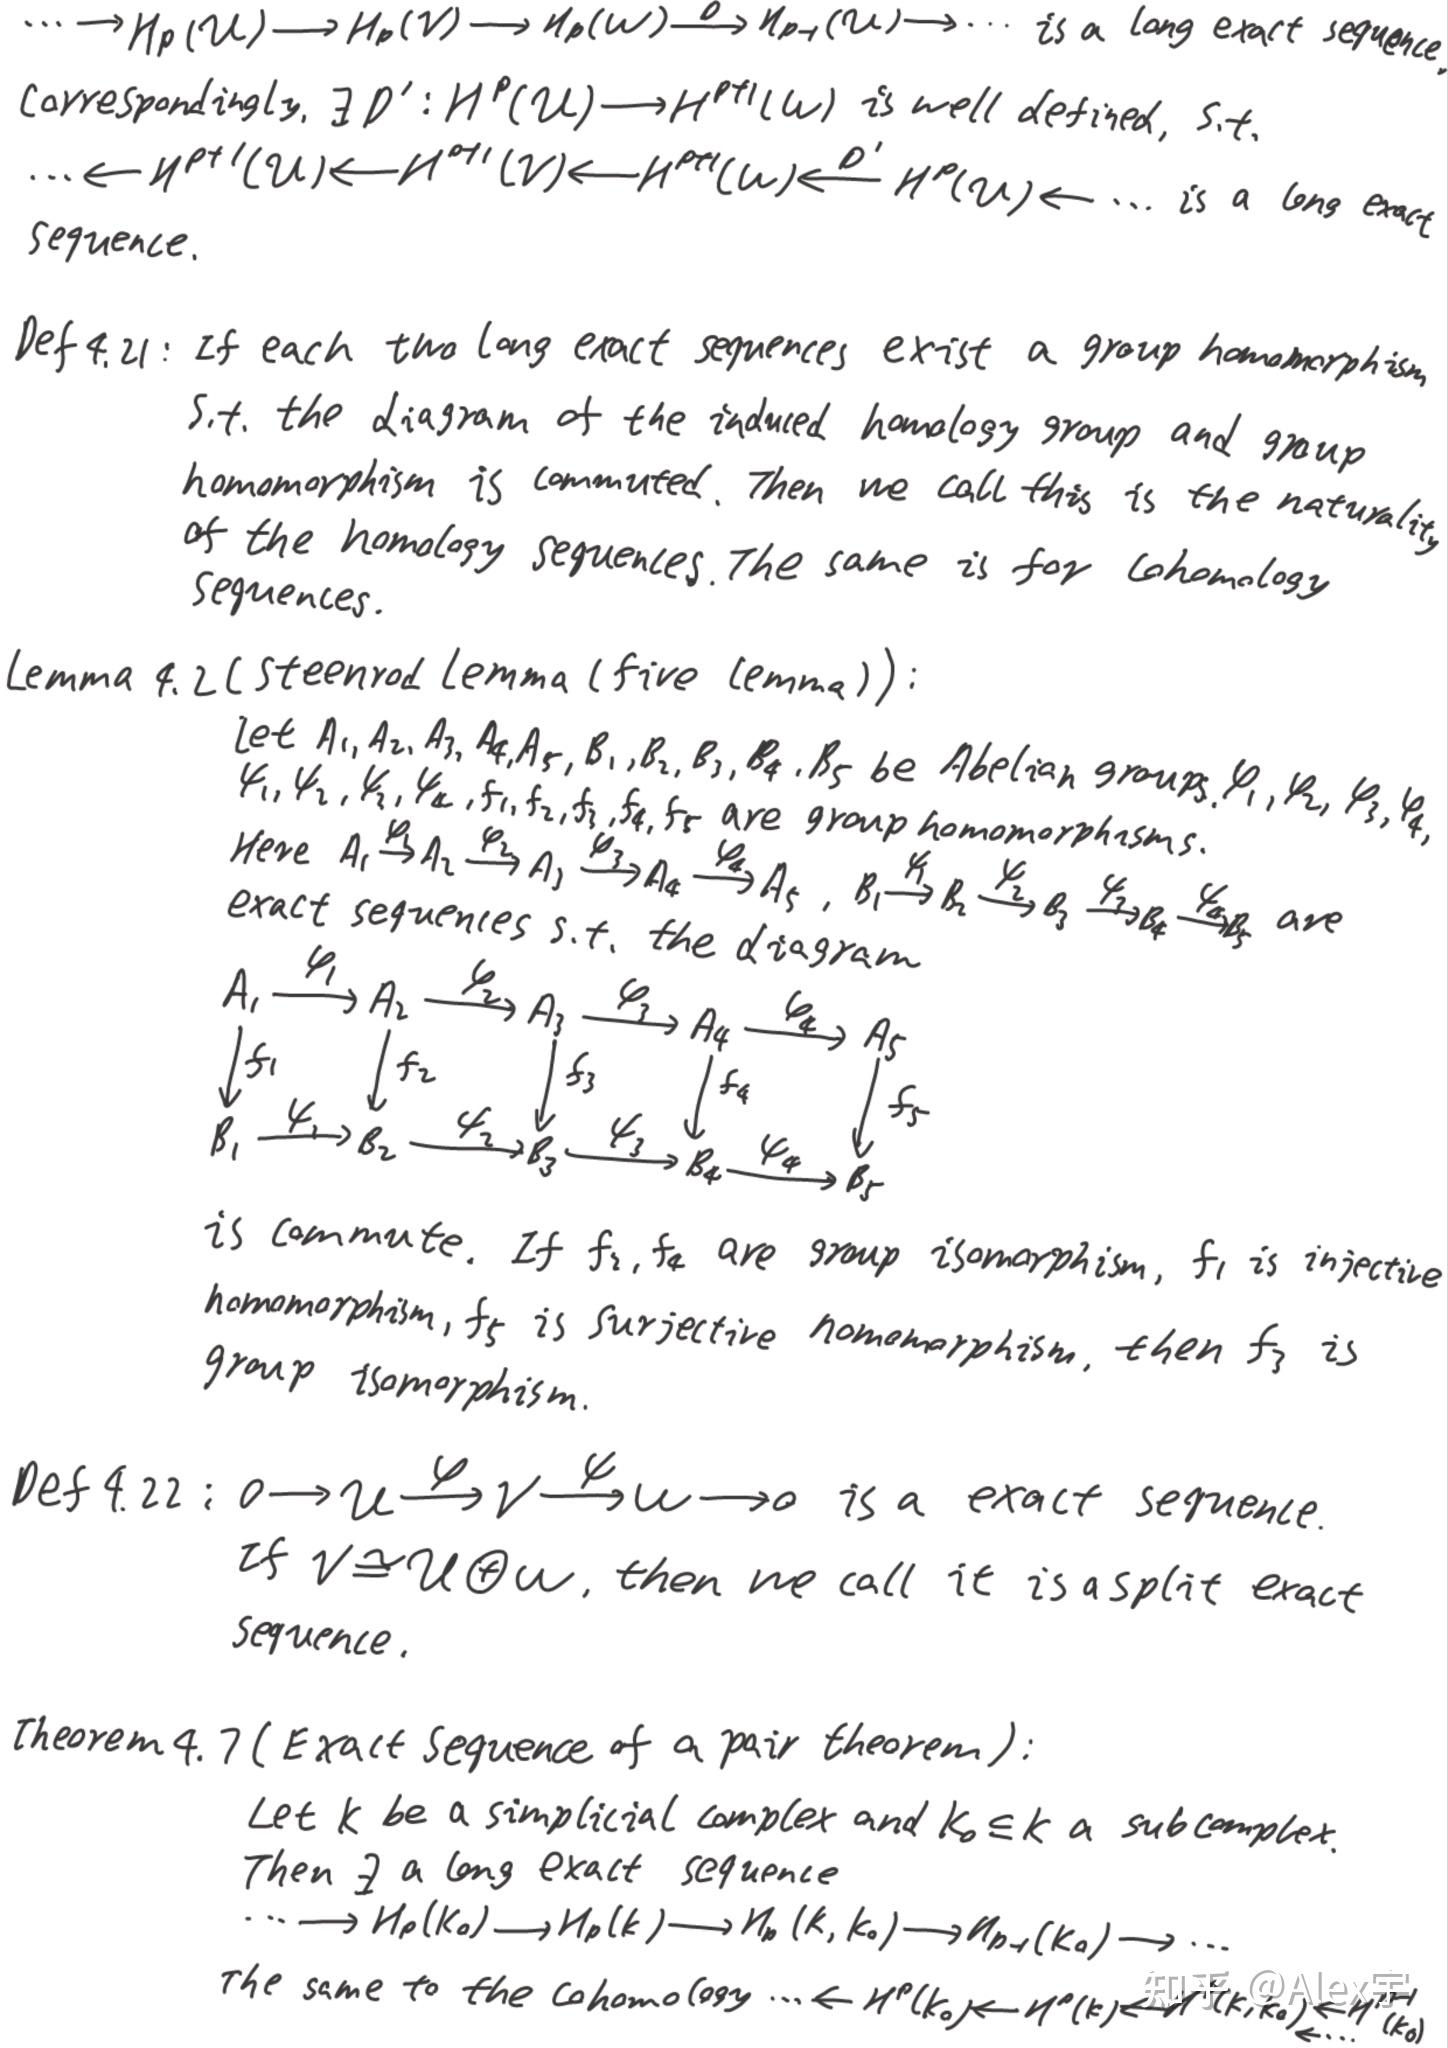 ⋯ → Hp(U) → Hp(V) → Hp(W) —D→ Hp-1(U) → ⋯ is a long exact sequence.
Correspondingly, ∃ D′: H^p(U) → H^{p+1}(W) is well defined, s.t.
⋯ ← H^{p+1}(U) ← H^{p+1}(V) ← H^{p+1}(W) ←D′— H^p(U) ← ⋯ is a long exact
sequence.
Def 4.21: If each two long exact sequences exist a group homomorphism
s.t. the diagram of the induced homology group and group
homomorphism is commuted. Then we call this is the naturality
of the homology sequences. The same is for cohomology
sequences.
Lemma 4.2 (Steenrod Lemma (five lemma)):
Let A₁, A₂, A₃, A₄, A₅, B₁, B₂, B₃, B₄, B₅ be Abelian groups. φ₁, φ₂, φ₃, φ₄,
ψ₁, ψ₂, ψ₃, ψ₄, f₁, f₂, f₃, f₄, f₅ are group homomorphisms.
Here A₁ —φ₁→ A₂ —φ₂→ A₃ —φ₃→ A₄ —φ₄→ A₅, B₁ —ψ₁→ B₂ —ψ₂→ B₃ —ψ₃→ B₄ —ψ₄→ B₅ are
exact sequences s.t. the diagram
A₁ —φ₁→ A₂ —φ₂→ A₃ —φ₃→ A₄ —φ₄→ A₅
↓f₁ ↓f₂ ↓f₃ ↓f₄ ↓f₅
B₁ —ψ₁→ B₂ —ψ₂→ B₃ —ψ₃→ B₄ —ψ₄→ B₅
is commute. If f₂, f₄ are group isomorphism, f₁ is injective
homomorphism, f₅ is surjective homomorphism, then f₃ is
group isomorphism.
Def 4.22: 0 → U —φ→ V —ψ→ W → 0 is a exact sequence.
If V ≅ U ⊕ W, then we call it is a split exact
sequence.
Theorem 4.7 (Exact Sequence of a pair theorem):
Let K be a simplicial complex and K₀ ⊆ K a subcomplex.
Then ∃ a long exact sequence
⋯ → Hp(K₀) → Hp(K) → Hp(K, K₀) → Hp-1(K₀) → ⋯
The same to the cohomology ⋯ ← H^p(K₀) ← H^p(K) ← (K, K₀) ← (K₀)
← ⋯
知乎 @Alex宇